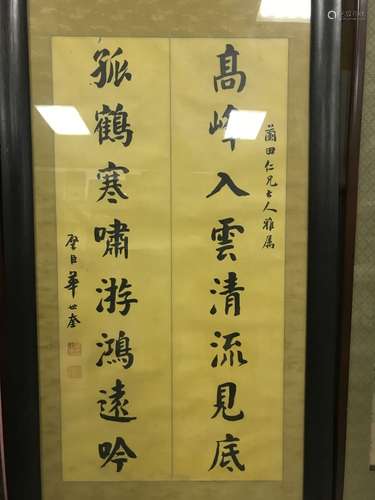 高峰入雲清流見底
蘭田仁兄大人雅屬
孤鶴寒嘯游鴻遠吟
壁臣華世奎